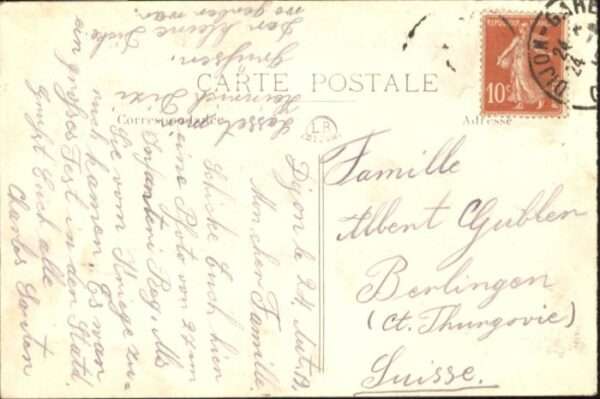 CARTE POSTALE
Correspondance
Adresse
LR
10c
DIJON-GARE
24
Dijon le 24. Aut. 19.
Mon cher Famille.
Schicke Euch hier
eine Photo vom 27 um
Infanterie Reg. Als
Sie vom Kriege zu-
rück kamen. Es war
ein großes Fest in der Stadt.
Grüßt Euch alle
Charles
Lasset
Heinrich
grüssen.
Der kleine Dicke.
Famille
Albert Gubler
Berlingen
(Ct. Thurgovie)
Suisse.